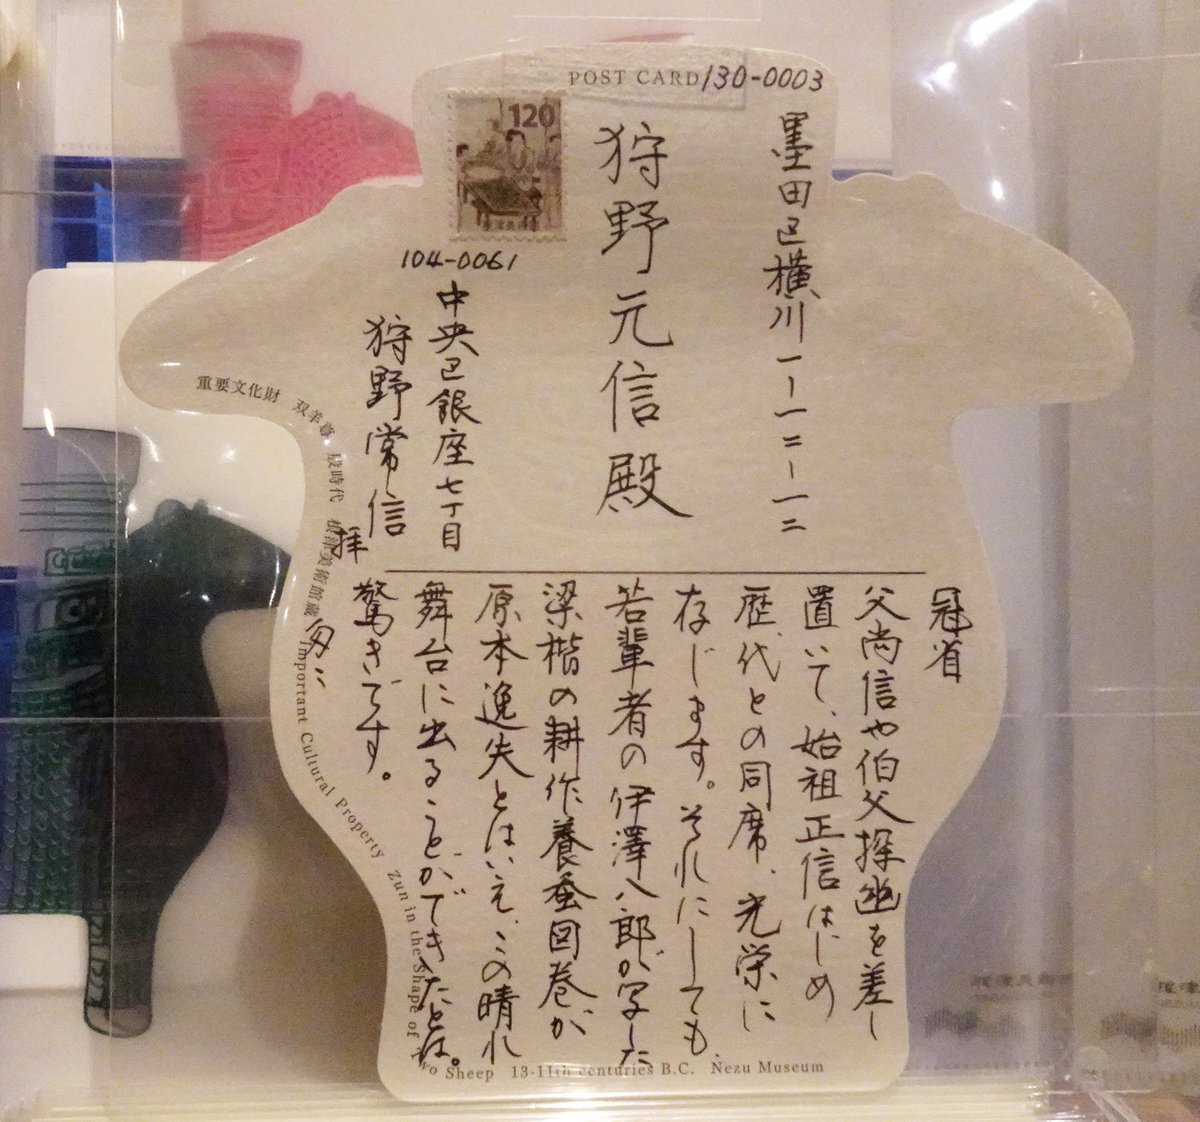 POST CARD
130-0003
墨田区横川一ー一二ー一二
狩野元信殿
120
104-0061
中央区銀座七丁目
狩野常信
拝
冠省
父尚信や伯父探幽を差し
置いて、始祖正信はじめ
歴代との同席、光栄に
存じます。それにしても、
若輩者の伊澤八郎が写した
梁楷の耕作養蚕図巻が
原本逸失とはいえ、この晴れ
舞台に出ることができたとは。
驚きです。
匆々
重要文化財 双羊尊 時代 根津美術館蔵
Important Cultural Property Zun in the Shape of Two Sheep 13-11th centuries B.C. Nezu Museum